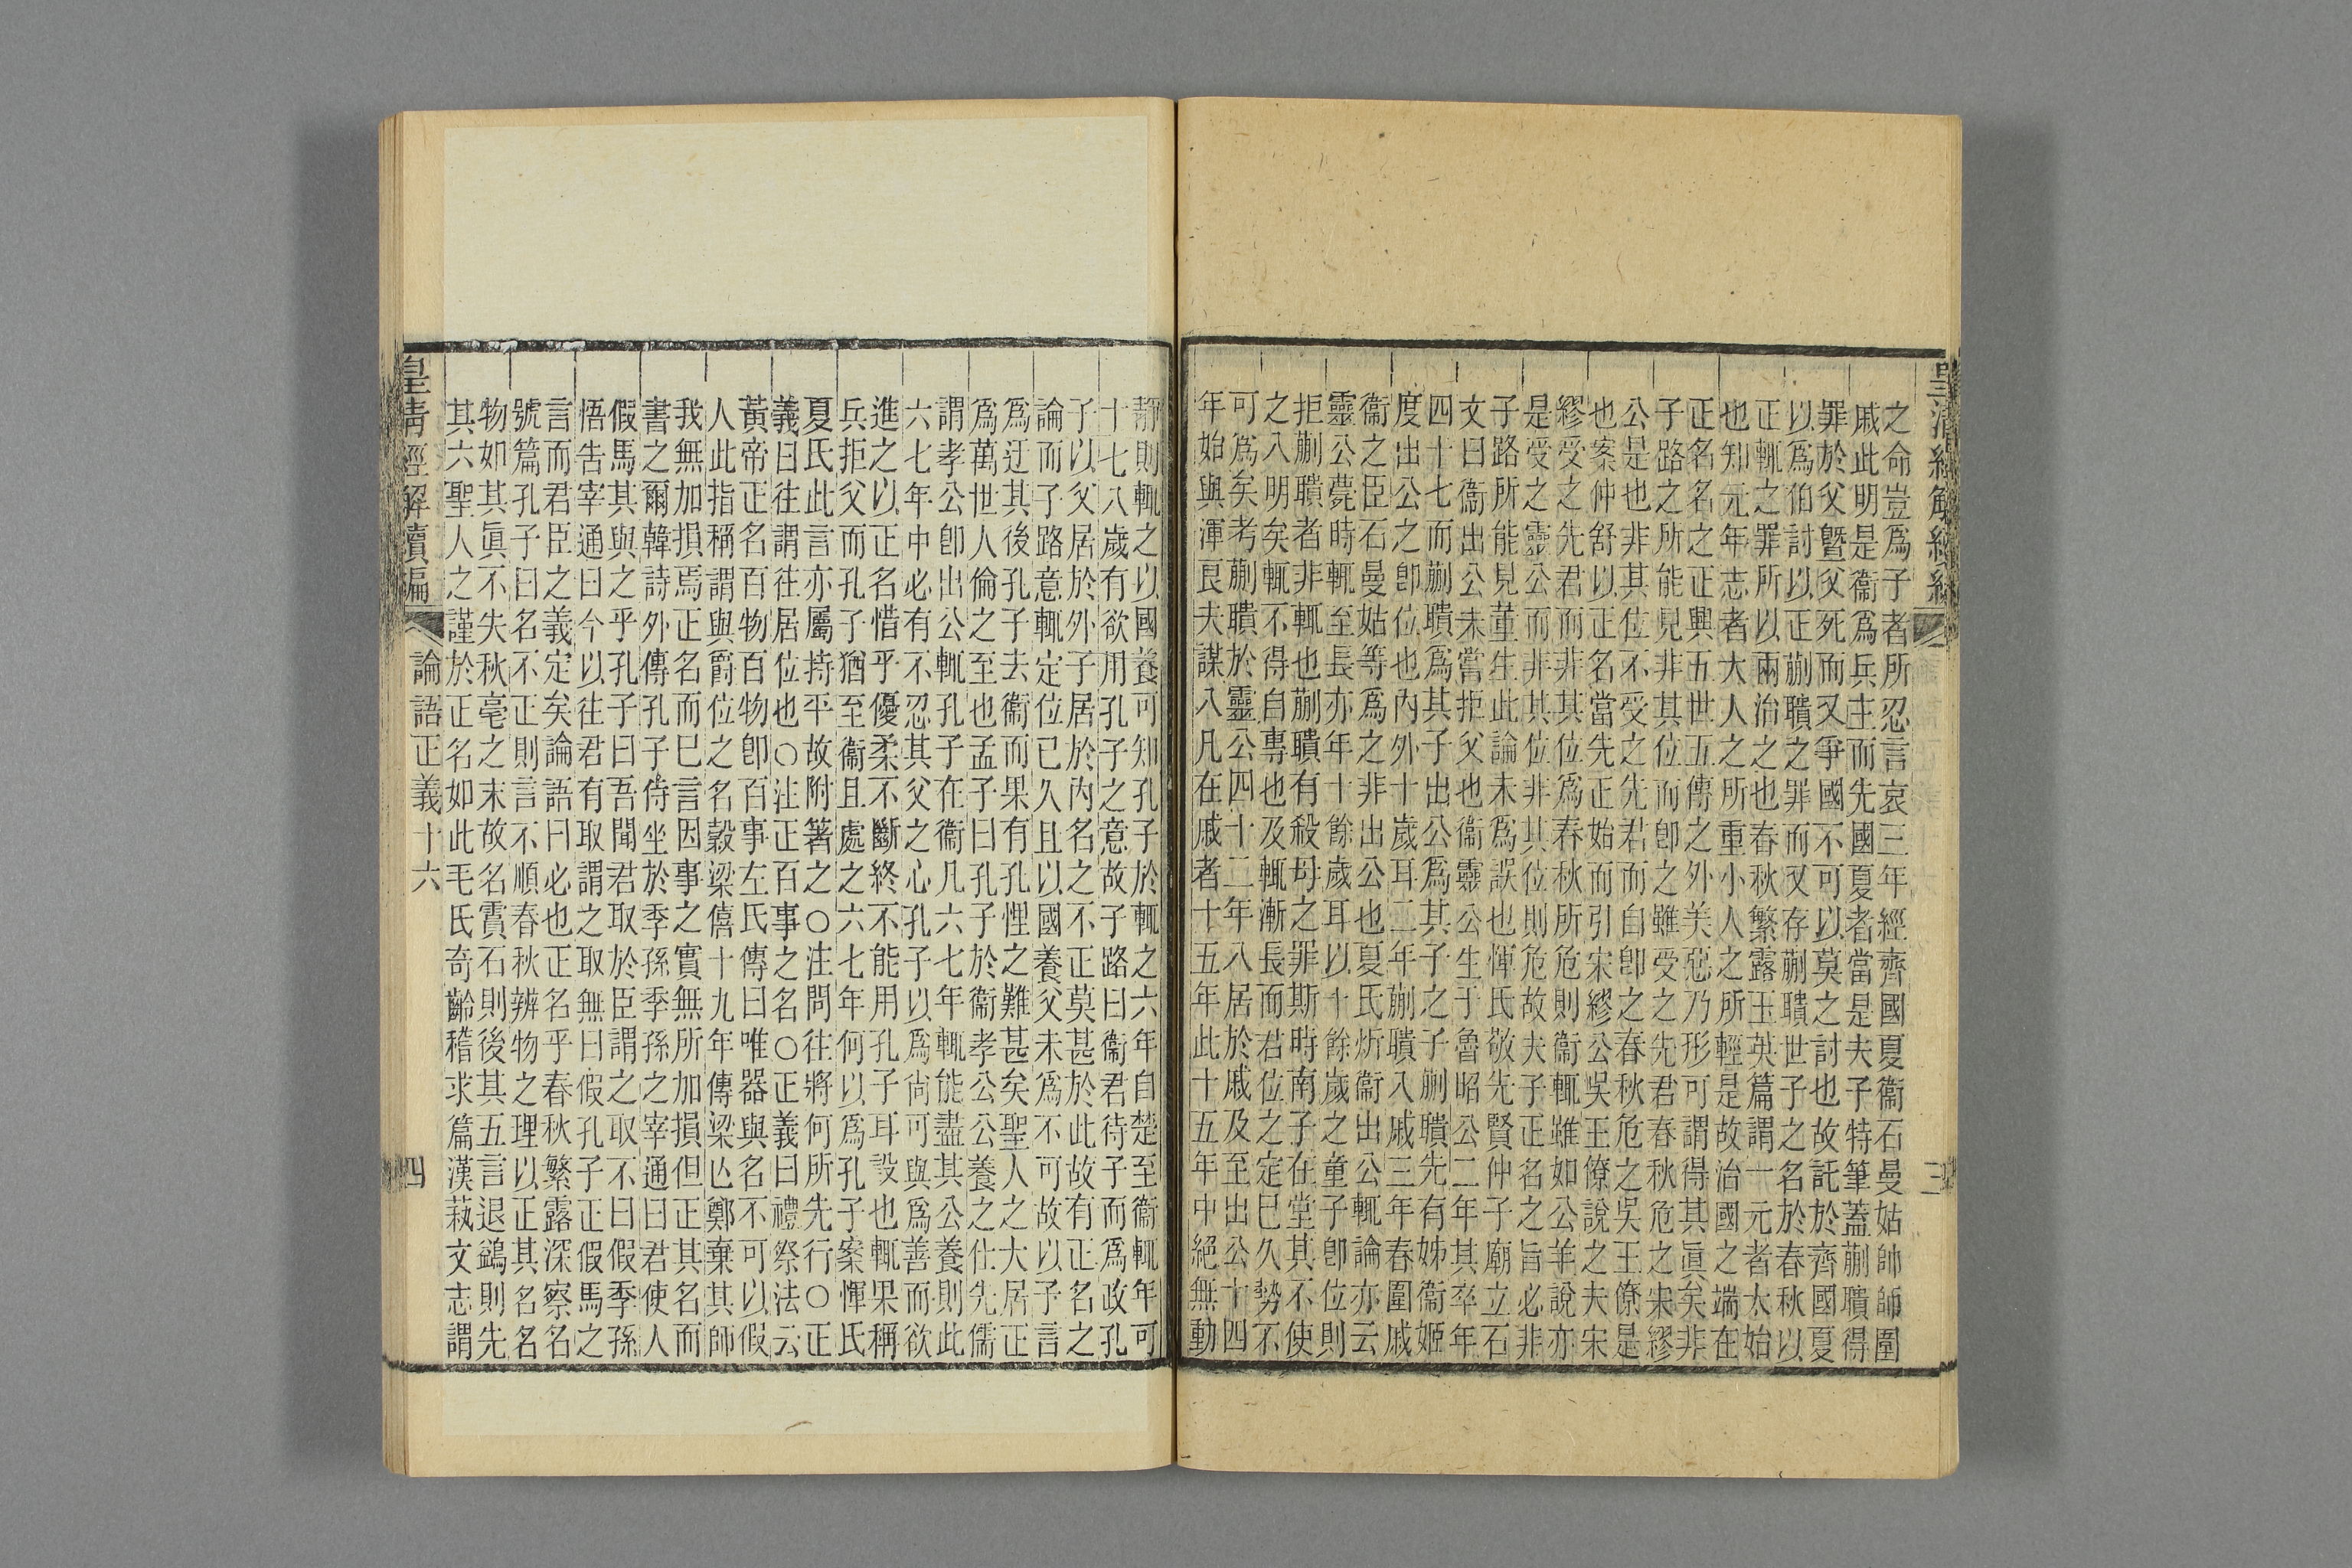 皇清經解續編
三
之命豈爲子者所忍言哀三年經齊國夏衞石曼姑帥師圍
戚此明是衞爲兵主而先國夏者當是夫子特筆蓋蒯聵得
罪於父曁父死而又爭國不可以莫之討也故託於齊國夏
以爲伯討以正蒯聵之罪而又存蒯聵世子之名於春秋以
正輒之罪所以兩治之也春秋繁露玉英篇謂一元者太始
也知元年志者大人之所重小人之所輕是故治國之端在
正名名之正興五世五傳之外美惡乃形可謂得其眞矣非
子路之所能見非其位而卽之雖受之先君春秋危之宋繆
公是也非其位不受之先君而自卽之春秋危之吳王僚是
也案仲舒以正名當先正始而引宋繆公吳王僚說之夫宋
繆受之先君而非其位爲春秋所危則衞輒雖如公羊說亦
是受之靈公而非其位非其位則危故夫子正名之旨必非
子路所能見董生此論未爲誤也惲氏敬先賢仲子廟立石
文曰衞出公未嘗拒父也衞靈公生于魯昭公二年其卒年
四十七而蒯聵爲其子出公爲其子之子蒯聵先有姊衞姬
度出公之卽位也內外十歲耳二年蒯聵入戚三年春圍戚
衞之臣石曼姑等爲之非出公也夏氏炘衞出公輒論亦云
靈公薨時輒至長亦年十餘歲耳以十餘歲之童子卽位則
拒蒯聵者非輒也蒯聵有殺母之罪斯時南子在堂其不使
之入明矣輒不得自專也及輒漸長而君位之定已久勢不
可爲矣考蒯聵於靈公四十二年入居於戚及至出公十四
年始與渾艮夫謀入凡在戚者十五年此十五年中絕無動
靜則輒之以國養可知孔子於輒之六年自楚至衞輒年可
十七八歲有欲用孔子之意故子路曰衞君待子而爲政孔
子以父居於外子居於內名之不正莫甚於此故有正名之
論而子路意輒定位已久且以國養父未爲不可故以子言
爲迂其後孔子去衞而果有孔悝之難甚矣聖人之大居正
爲萬世人倫之至也孟子曰孔子於衞孝公公養之仕先儒
謂孝公卽出公輒孔子在衞凡六七年輒能盡其公養則此
六七年中必有不忍其父之心孔子以爲尙可與爲善而欲
進之以正名惜乎優柔不斷終不能用孔子耳設也輒果稱
兵拒父而孔子猶至衞且處之六七年何以爲孔子案惲氏
夏氏此言亦屬持平故附著之○注問往將何所先行○正
義曰往謂往居位也○注正百事之名○正義曰禮祭法云
黃帝正名百物百物卽百事左氏傳曰唯器與名不可以假
人此指稱謂與爵位之名穀梁僖十九年傳梁亾鄭棄其師
我無加損焉正名而已言因事之實無所加損但正其名而
書之爾韓詩外傳孔子侍坐於季孫季孫之宰通曰君使人
假馬其與之乎孔子曰吾聞君取於臣謂之取不曰假季孫
悟吿宰通曰今以往君有取謂之取無曰假孔子正假馬之
言而君臣之義定矣論語曰必也正名乎春秋繁露深察名
號篇孔子曰名不正則言不順春秋辨物之理以正其名名
物如其眞不失秋毫之末故名霣石則後其五言退鷁則先
其六聖人之謹於正名如此毛氏奇齡稽求篇漢蓺文志謂
皇清經解續編
論語正義十六
四